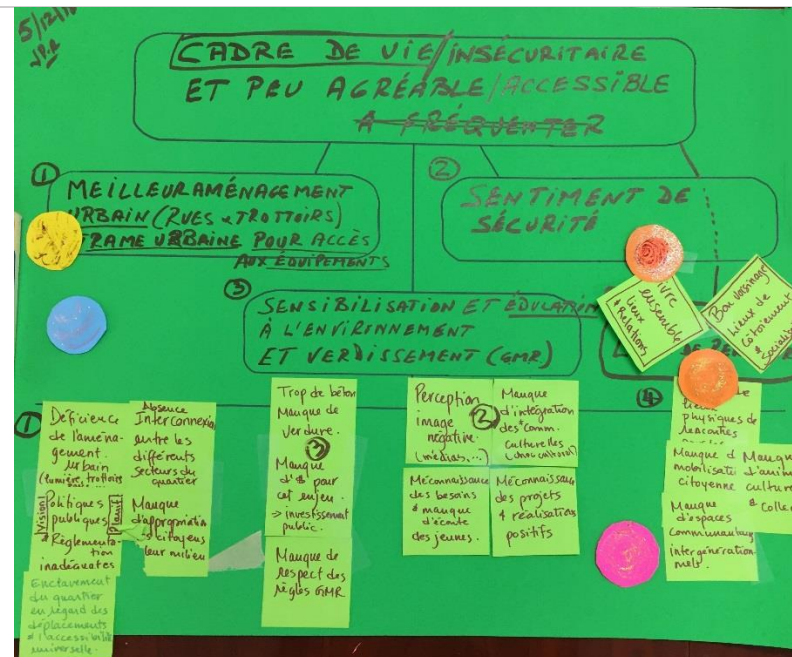 5/12/
CADRE DE VIE/INSÉCURITAIRE
ET PEU AGRÉABLE/ACCESSIBLE
A FRÉQUENTER
①
MEILLEUR AMÉNAGEMENT
URBAIN (RUES & TROTTOIRS)
TRAME URBAINE POUR ACCÈS
AUX ÉQUIPEMENTS
②
SENTIMENT DE
SÉCURITÉ
③
SENSIBILISATION ET ÉDUCATION
À L'ENVIRONNEMENT
ET VERDISSEMENT (GMR)
Vivre
ensemble
lieux
& Relations
Bon voisinage
Lieux de
côtoiement
& socialis
①
Déficience
de l'aména-
gement
urbain
(lumière, trottoirs
Vision!
Politiques
publiques
& Réglementa-
tion
inadéquates
Planif
Enclavement
du quartier
en regard des
déplacements
& l'accessibilité
universelle.
Absence
Interconnexion
entre les
différents
secteurs du
quartier
Manque
d'appropriation
citoyens
leur milieu
Trop de béton
Manque de
verdure.
③
Manque
d'$ pour
cet enjeu.
-> investissement
public.
Manque de
respect des
règles GMR
Perception
image
négative.
(médias...)
②
Manque
d'intégration
des comm.
culturelles
(choc culturel)
Méconnaissance
des besoins
& manque
d'écoute
des jeunes.
Méconnaissance
des projets
& réalisations
positifs
④
lieux
physiques de
rencontres
Manque d
mobilisati
citoyenne
Manqu
d'anim
culture
& Collec
Manque
d'espaces
communautai
intergénération-
nels.